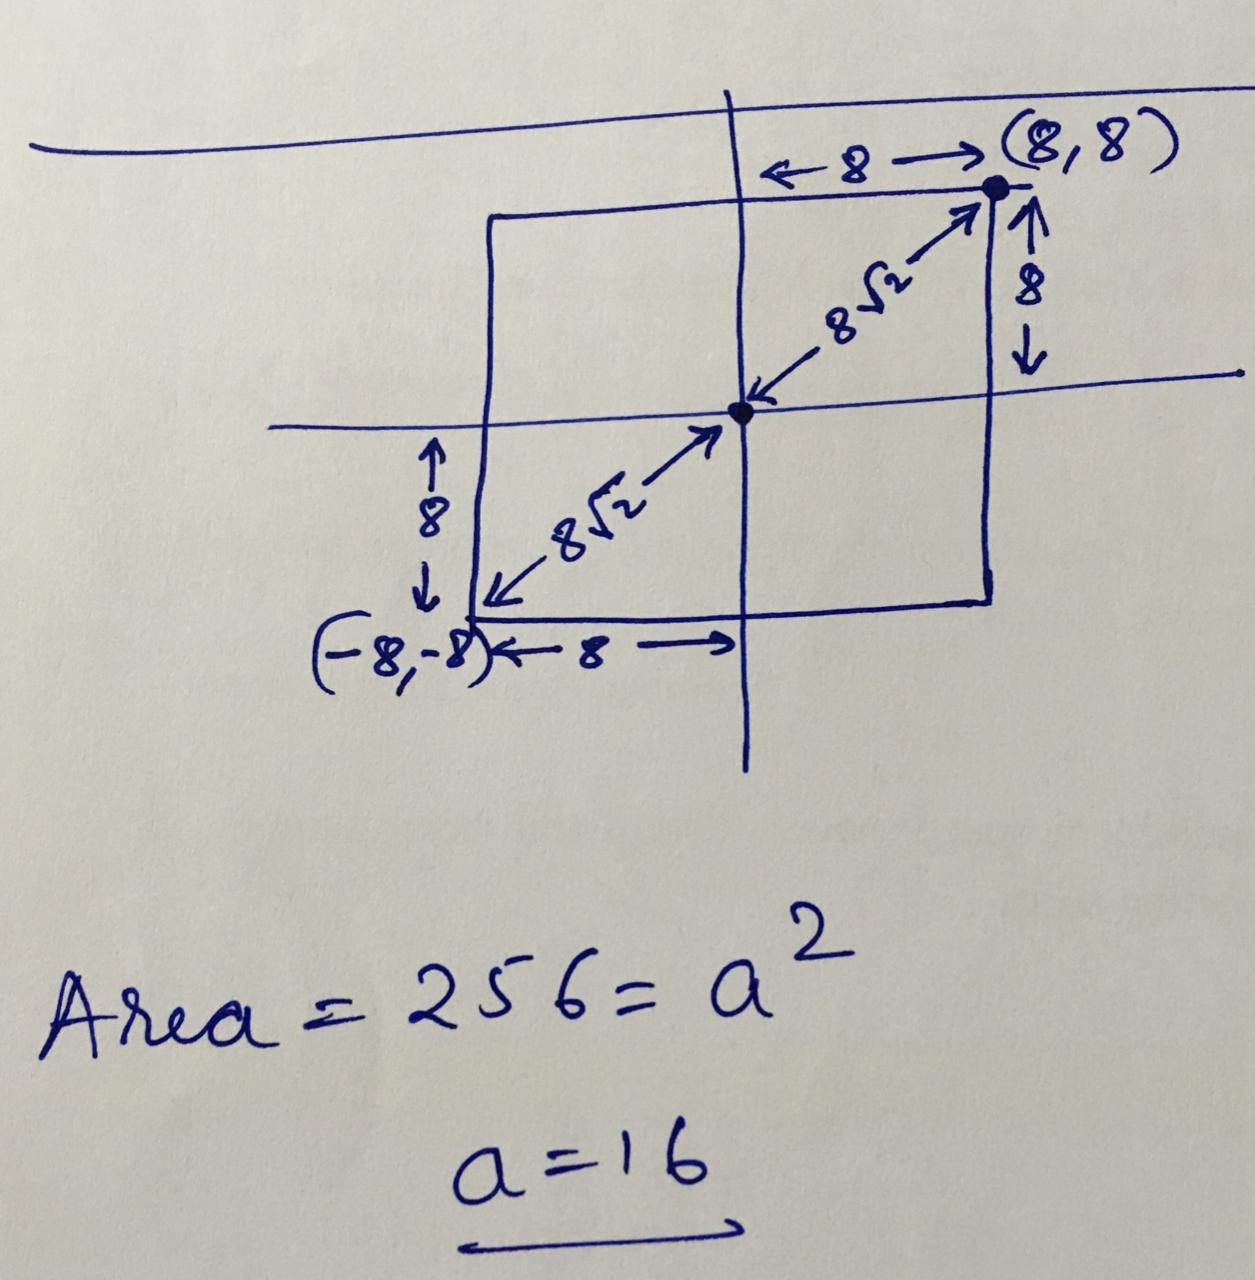 ← 8 → (8, 8)
8√2
↑ 8 ↓
8√2
↑ 8 ↓
(-8,-8) ← 8 →
Area = 256 = a²
a = 16